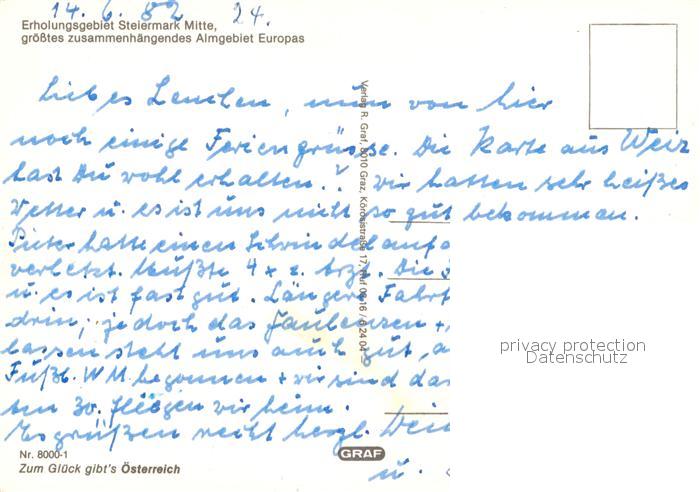 14.6.82 24.
Erholungsgebiet Steiermark Mitte,
größtes zusammenhängendes Almgebiet Europas
Liebes Lenchen, nun von hier
noch einige Feriengrüsse. Die Karte aus Weiz
hast Du wohl erhalten.? Wir hatten sehr heißes
Wetter u. es ist uns nicht so gut bekommen.
Pieter hatte einen Schwindelanfa
verletzt. Mußte 4 x z. Arzt. Die
u. es ist fast gut. Längere Fahrt
drin, jedoch das Faulenzen +
lassen steht uns auch gut, a
Fußb. WM begonnen + wir sind da
Am 30. fliegen wir heim.
Es grüßen recht herzl. Dein
u.
Nr. 8000-1
Zum Glück gibt's Österreich
GRAF
Verlag R. Graf, 8010 Graz, Körösistraße 17, Ruf 03 16 / 6 24 04
privacy protection
Datenschutz